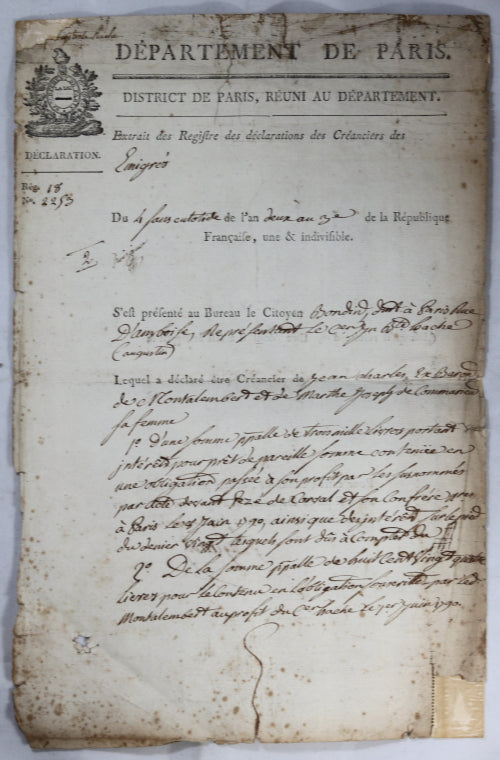 DÉPARTEMENT DE PARIS.
DISTRICT DE PARIS, RÉUNI AU DÉPARTEMENT.
DÉCLARATION.
Extrait des Registre des déclarations des Créanciers des
Emigrés
Reg. 18
No. 2253
Du 4 sans culotide de l'an deux au de la République
Française, une & indivisible.
2
S'est présenté au Bureau le Citoyen dmt à Paris Rue
D'amboise, Représentant le Cen
(augustin)
Lequel a déclaré être Créancier de Jean Charles Ex Baron
de Montalembert et de Marthe Joseph de Commarieu
sa femme
1o. D'une somme ppalle de trois mille Livres portant
intérêt pour prêt de pareille somme contenüe en
une obligation passée à son profit par les susnommés
par acte devant et son Confrère
à Paris le Juin 1790, ainsique des intérêts sur le pied
du denier vingt lesquels sont dûs à Compter du
2o. De la somme ppalle de huit Cent Vingt quatre
Livres pour le Contenu en L'obligation souscritte par led
Montalembert au profit du Cen le 1er Juin 1790.